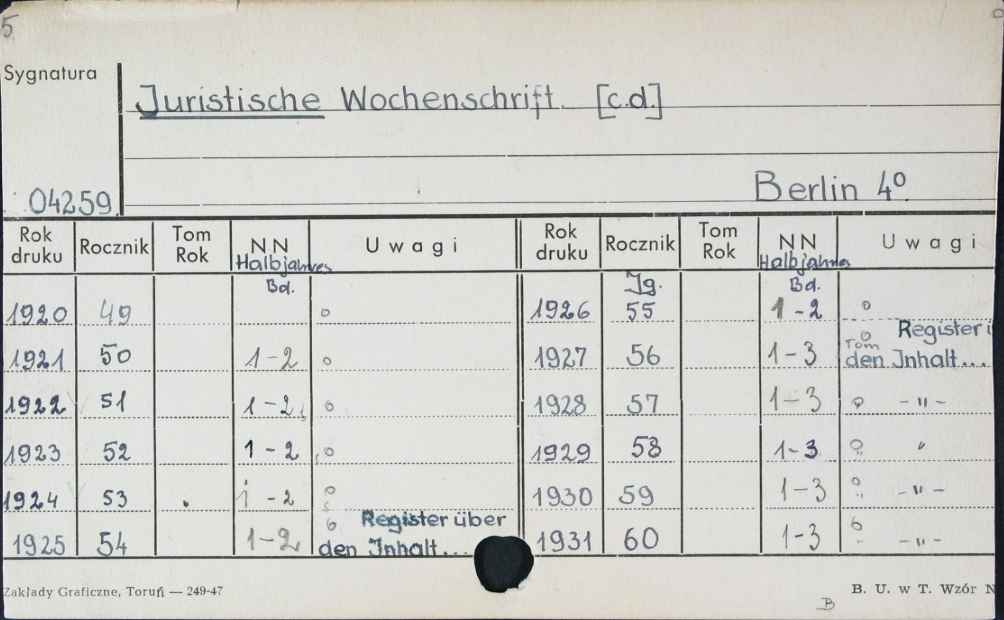 5
Sygnatura
Juristische Wochenschrift. [c.d.]
04259.
Berlin 4º
Rok druku Rocznik Tom Rok NN Uwagi Rok druku Rocznik Tom Rok NN Uwagi
Halbjahres Bd. Jg. Halbjahres Bd.
1920 49 o 1926 55 1-2 o
1921 50 1-2 o 1927 56 1-3 o Tom Register i den Inhalt...
1922 51 1-2 o 1928 57 1-3 o -"-
1923 52 1-2 o 1929 58 1-3 o "
1924 53 1-2 o 1930 59 1-3 o -"-
1925 54 1-2 o Register über den Inhalt... 1931 60 1-3 o -"-
Zakłady Graficzne, Toruń — 249-47
B. U. w T. Wzór N
B